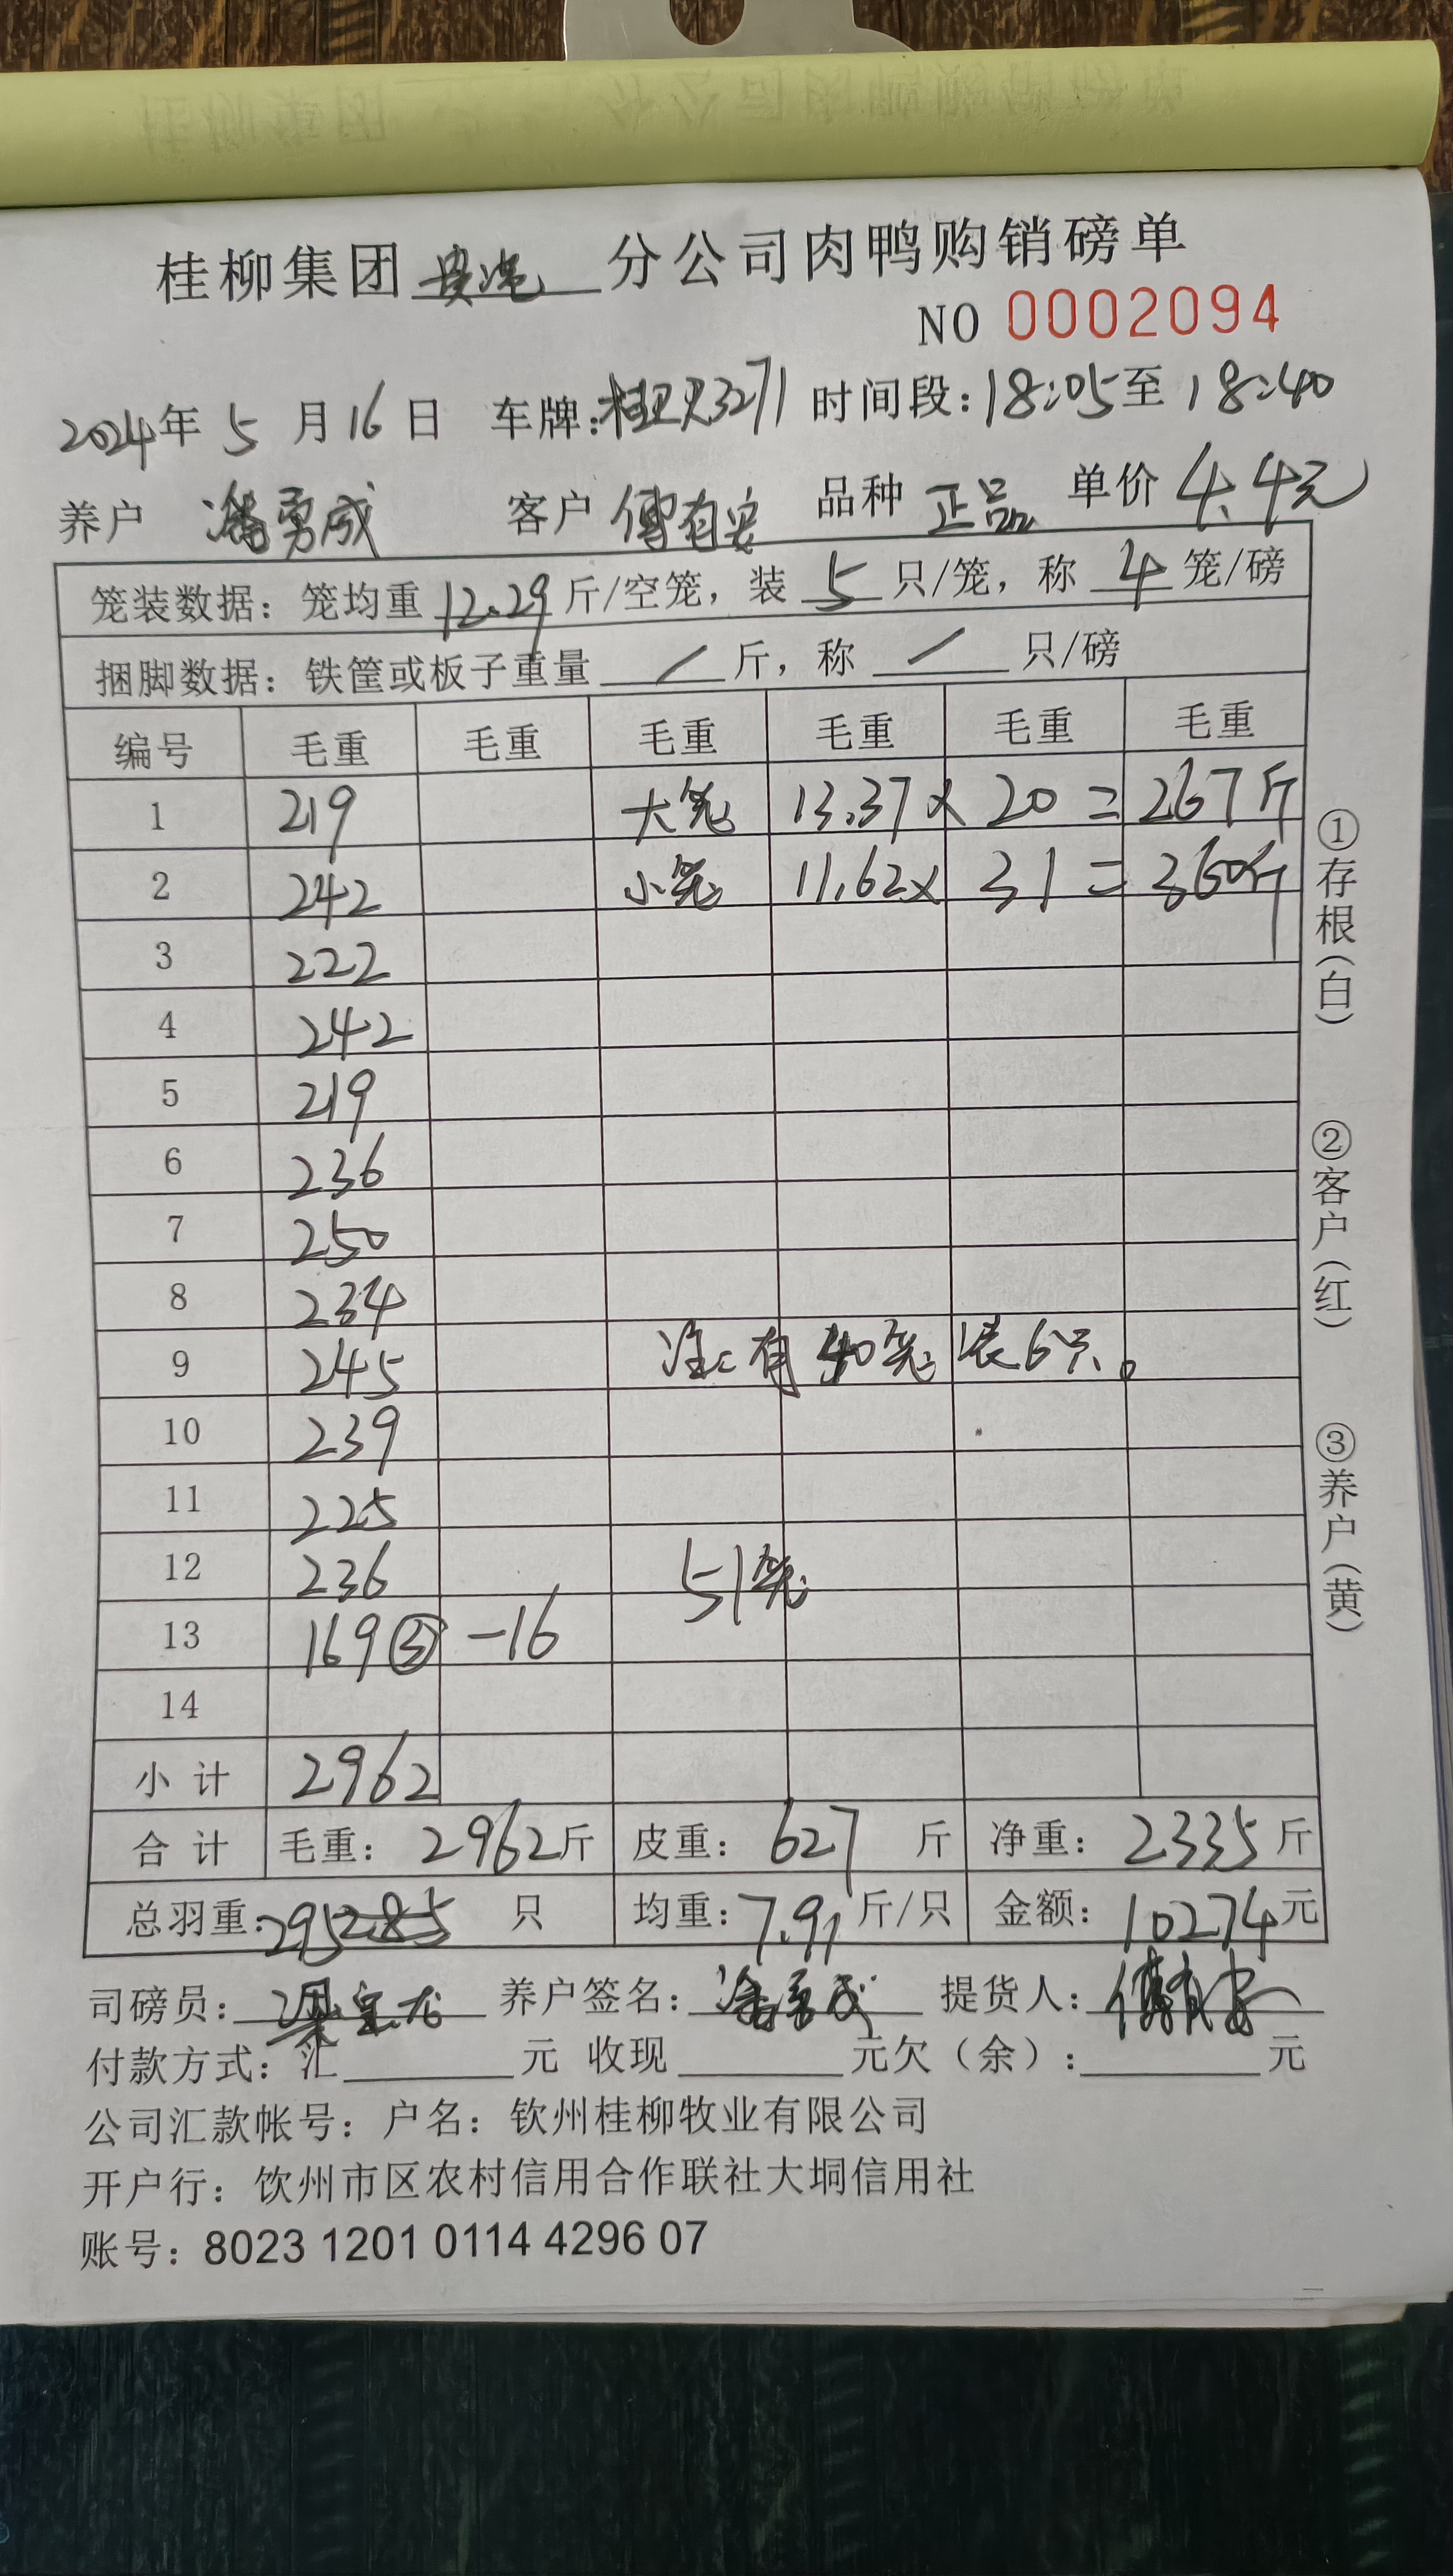 桂柳集团 贵港 分公司肉鸭购销磅单
NO 0002094
2024年 5 月 16 日 车牌: 时间段: 18:05 至 18:40
养户 潘勇成 客户 傅有安 品种 正品 单价 4.4元
笼装数据: 笼均重 12.29 斤/空笼, 装 5 只/笼, 称 4 笼/磅
捆脚数据: 铁筐或板子重量 / 斤, 称 / 只/磅
编号 毛重 毛重 毛重 毛重 毛重 毛重
1 219 大笼 13.37 x 20 = 267斤
2 242 小笼 11.62 x 31 = 360斤
3 222
4 242
5 219
6 236
7 250
8 234
9 245 注: 有 40笼 装6只。
10 239
11 225
12 236 51笼
13 169 ③ -16
14
小 计 2962
合 计 毛重: 2962 斤 皮重: 627 斤 净重: 2335 斤
总羽重: 295 285 只 均重: 7.91 斤/只 金额: 10274 元
司磅员: 养户签名: 潘勇成 提货人: 傅有安
付款方式: 汇 元 收现 元欠（余）: 元
公司汇款帐号: 户名: 钦州桂柳牧业有限公司
开户行: 饮州市区农村信用合作联社大垌信用社
账号: 8023 1201 0114 4296 07
①存根（白）
②客户（红）
③养户（黄）